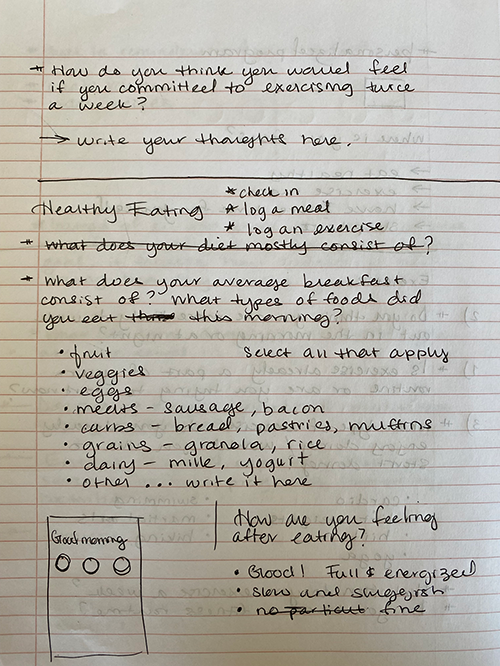 * How do you think you would feel
if you committed to exercising twice
a week?
→ write your thoughts here.
Healthy Eating
* check in
* log a meal
* log an exercise
* what does your diet mostly consist of?
* what does your average breakfast
consist of? what types of foods did
you eat this this morning?
select all that apply
• fruit
• veggies
• eggs
• meats - sausage, bacon
• carbs - bread, pastries, muffins
• grains - granola, rice
• dairy - milk, yogurt
• other ... write it here
Good morning
How are you feeling
after eating?
• Good! Full & energized
• slow and sluggish
• no particul fine